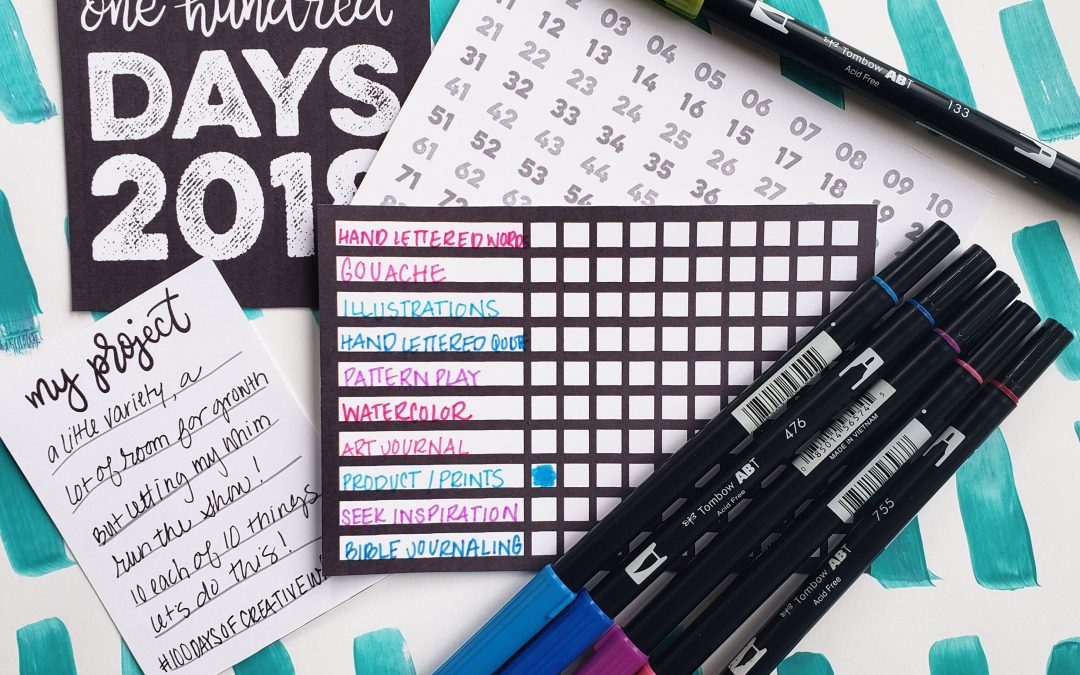 one hundred
DAYS
201
02 03 04 05 06 07 08 09 10
11 12 13 14 16 15 17 18 19
21 22 23 24 25 26 27
31 32 33 34 35 36
41 42 43 44 45
51 52 53 54
61 62
71 72
HAND LETTERED WORDS
GOUACHE
ILLUSTRATIONS
HAND LETTERED QUOTE
PATTERN PLAY
WATERCOLOR
ART JOURNAL
PRODUCT / PRINTS
SEEK INSPIRATION
BIBLE JOURNALING
my project
a little variety, a
lot of room for growth
but letting my whim
run the show!
10 each of 10 things
let's do this!
#100DAYSOFCREATIVEW
Tombow ABT
Acid Free
133
476
Tombow ABT
Acid Free
MADE IN VIETNAM
755
Tombow ABT
Acid Free